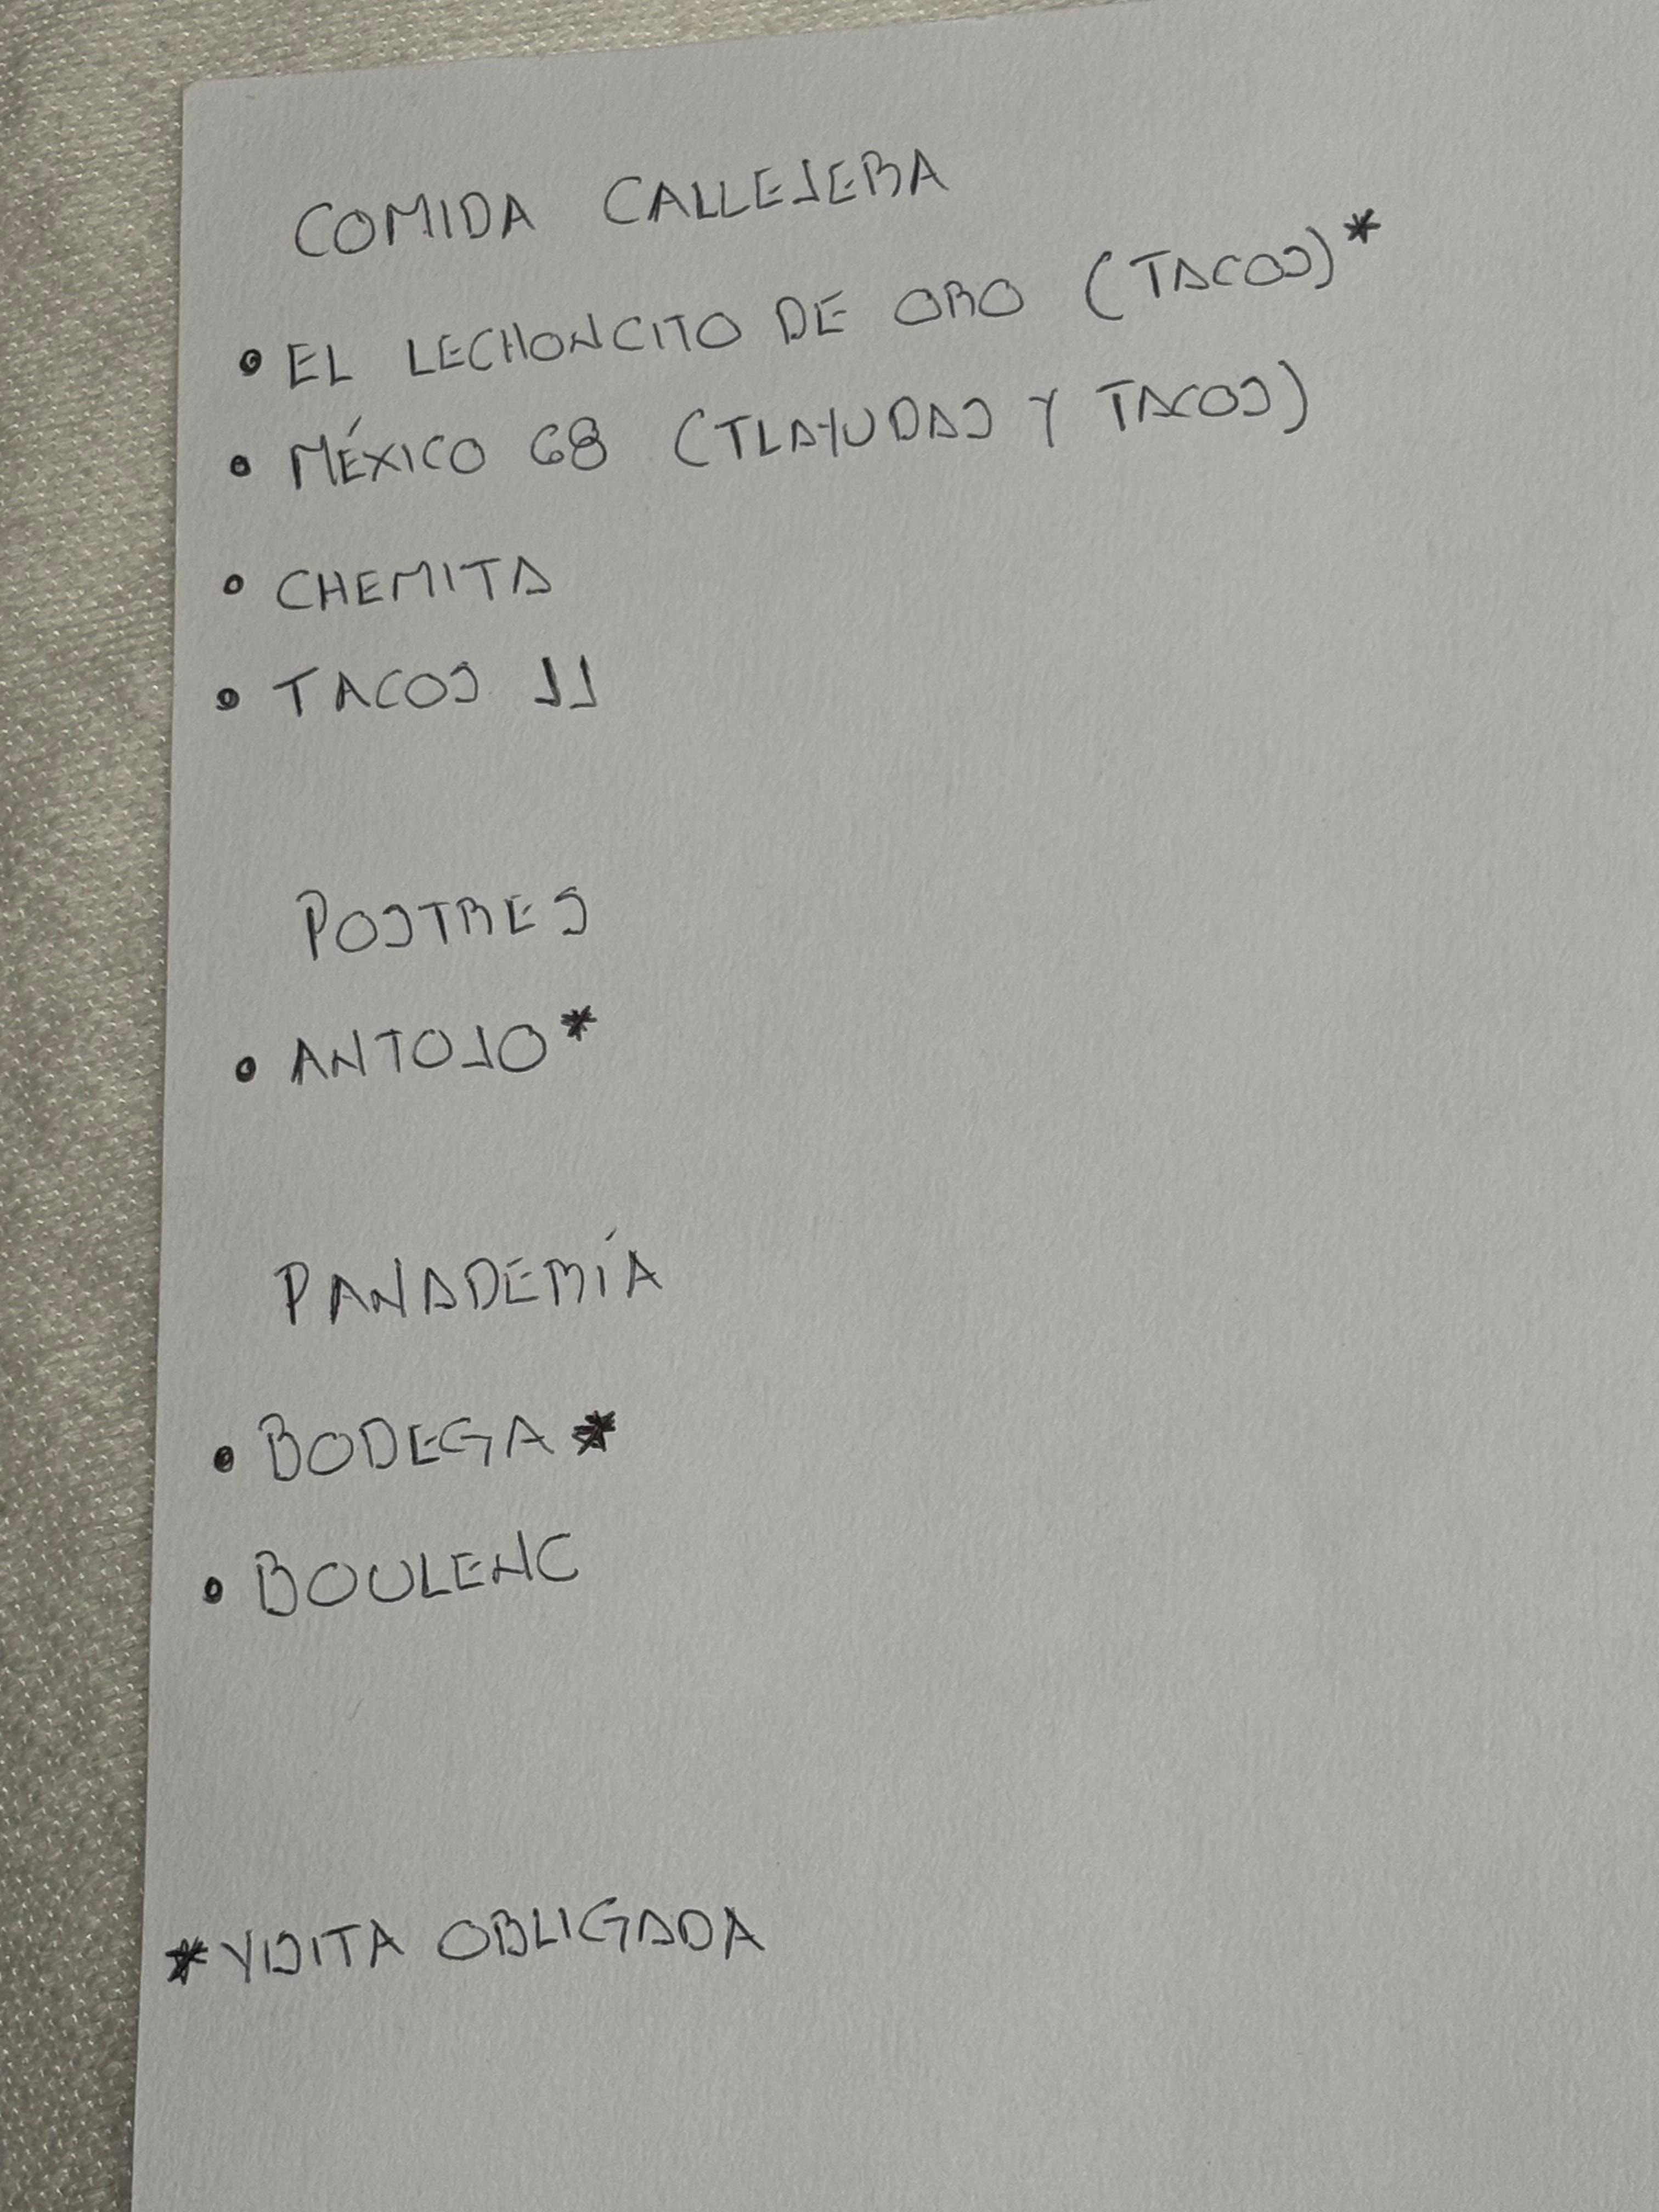 COMIDA CALLEJERA
• EL LECHONCITO DE ORO (TACOS)*
• MÉXICO 68 (TLAYUDAS Y TACOS)
• CHEMITA
• TACOS JJ
POSTRES
• ANTOJO*
PANADERÍA
• BODEGA*
• BOULENC
*VISITA OBLIGADA